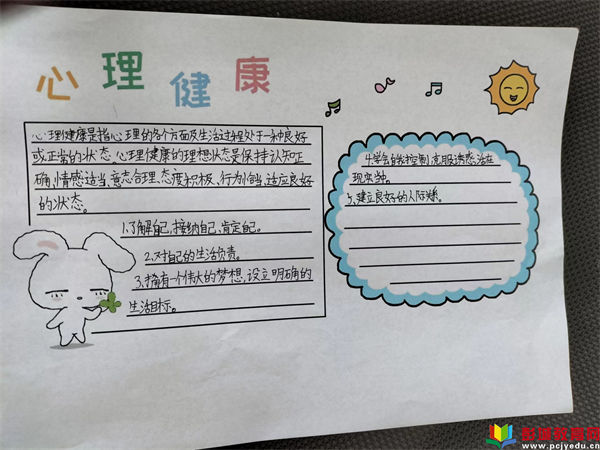 心理健康
心理健康是指心理的各个方面及生活过程处于一种良好
或正常的状态。心理健康的理想状态是保持认知正
确,情感适当、意志合理、态度积极、行为恰当、适应良好
的状态。
1.了解自己,接纳自己、肯定自己。
2.对自己的生活负责。
3.拥有一个伟大的梦想,设立明确的
生活目标。
4.学会自我控制,克服诱惑,活在
现实中。
5.建立良好的人际关系。
www.pcjyedu.cn